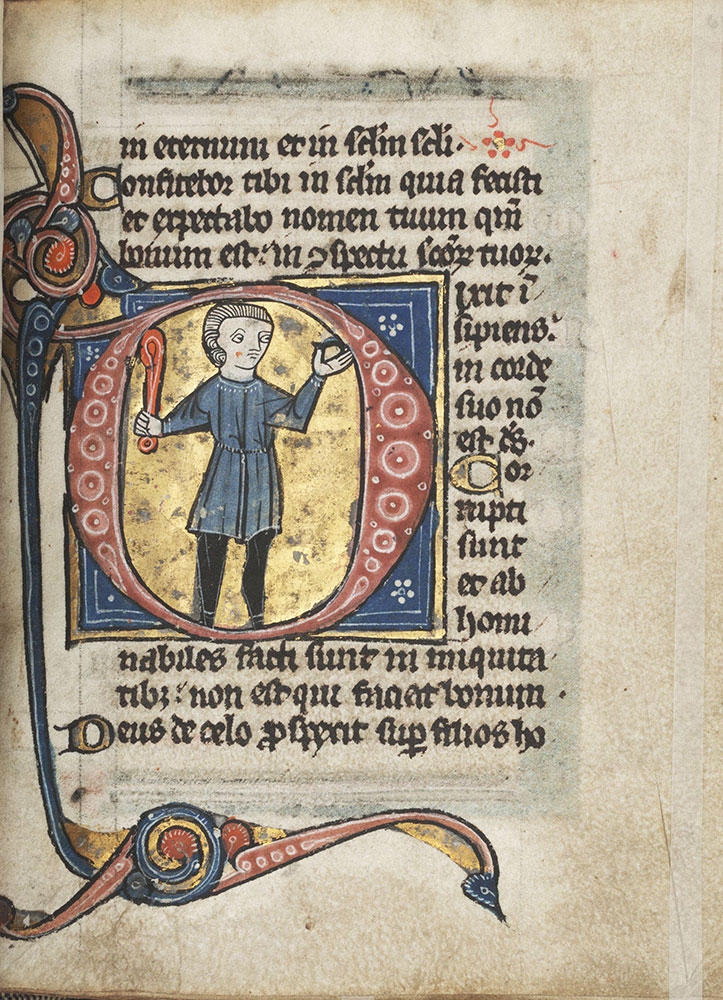 in eternum et in sclm scli.
Confitebor tibi in sclm quia fecisti
et expectabo nomen tuum qm̄
bonum est: in ꝯspectu scōr tuor.
Dixit ī
sipiens:
in corde
suo nō
est ds̄.
Cor
rupti
sunt
et ab
homi
nabiles facti sunt in iniquita
tibꝫ: non est qui faciat bonum
Deus de celo ꝓspexit sup̄ filios ho